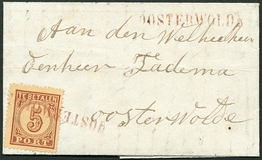 OOSTERWOLDE
Aan den Welheer
den heer Tadema
Oosterwolde
TE BETALEN
5
PORT
OOSTE